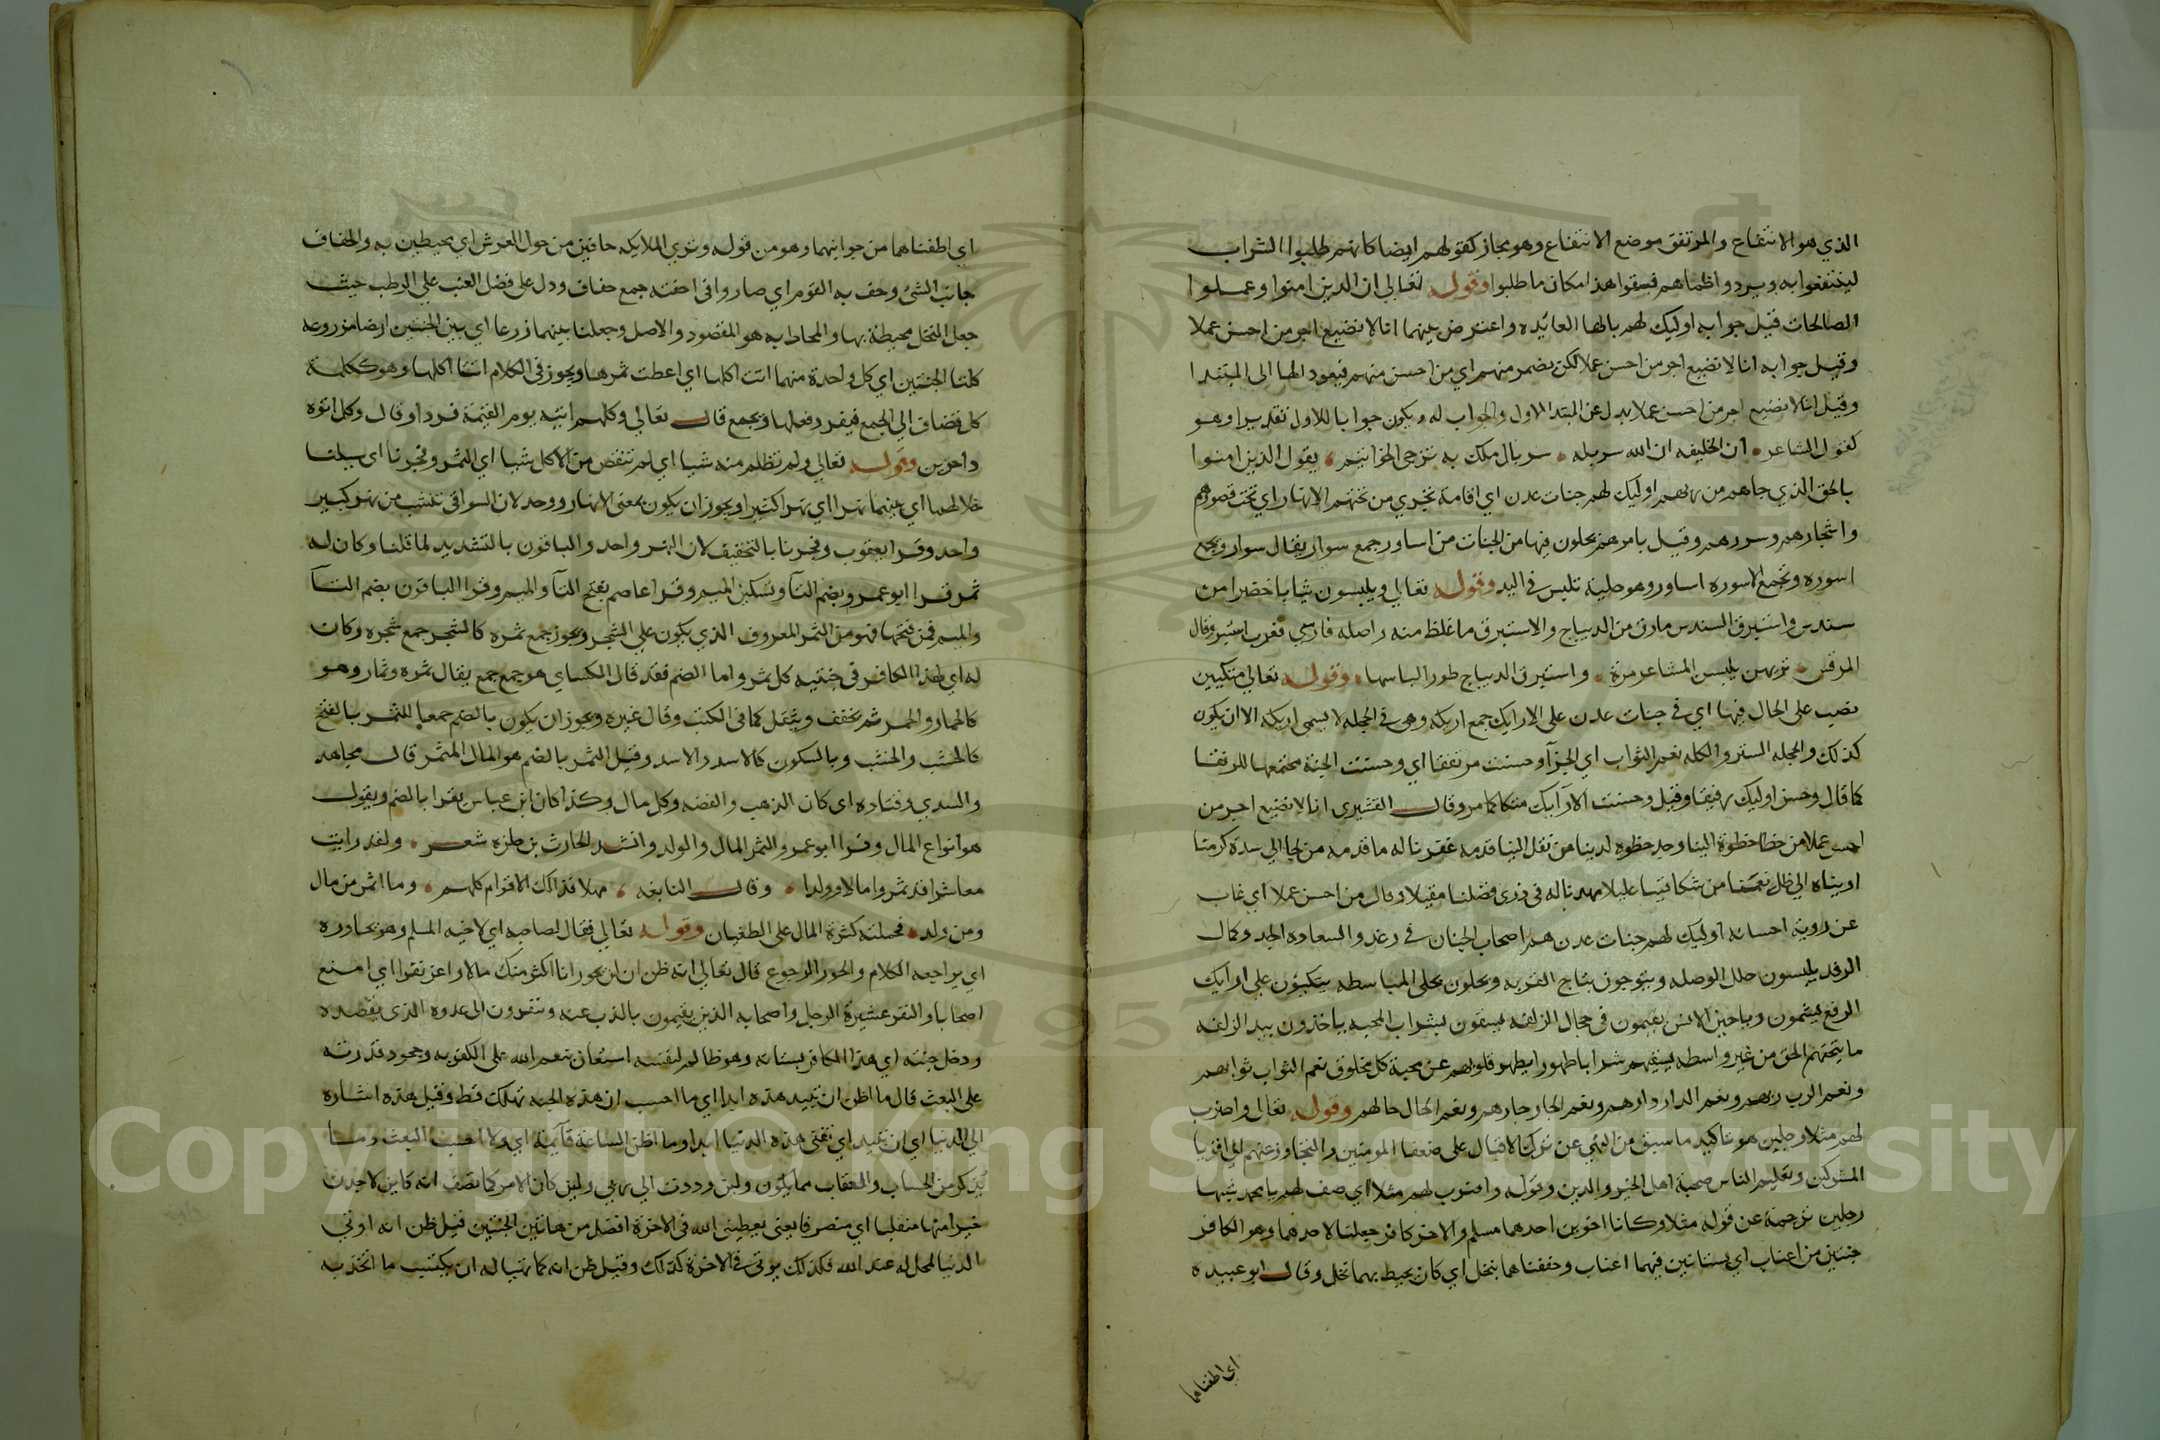 الذي هو الانتفاع والمرتفق موضع الانتفاع وهو مجاز كقولهم ايضا كانهم طلبوا الشراب
لينتفعوا به ويبرد واظماهم فسقوا هذا مكان ما طلبوا وقوله تعالى ان الذين امنوا وعملوا
الصالحات قيل جوابه اوليك لهم بالها العائده واعترض بينهما انا لا نضيع اجر من احسن عملا
وقيل جوابه انا لا نضيع اجر من احسن عملا لكن بضمير منهم اي من احسن منهم فيعود الها الى المبتدا
وقيل انا لا نضيع اجر من احسن عملا بدل عن المبتدا الاول والجواب له ويكون جوابا للاول تقديرا وهو
كقول الشاعر ان الخليفه ان الله سربله سربال ملك به تزجى الخواتيم يقول الذين امنوا
بالحق الذي جاهم من ربهم اوليك لهم جنات عدن اي اقامة تجري من تحتهم الانهار اي تحت قصورهم
واشجارهم وسررهم وقيل بامرهم يحلون فيها من الجنات من اساور جمع سوار يقال سوار ويجمع
اسوره وتجمع الاسوره اساور وهو حلية تلبس في اليد وقوله تعالى ويلبسون ثيابا خضرا من
سندس واستبرق السندس ما رق من الديباج والاستبرق ما غلظ منه واصله فارسي فعرب استبر وقال
المرقش تريهن يلبسن المشاعر مرة واستبرق الديباج طورا لباسها وقوله تعالى متكيين
نصب على الحال فيها اي في جنات عدن على الارايك جمع اريكه وهي في الحجله لا يسمى اريكه الا ان يكون
كذلك والحجله الستر والكله نعم الثواب اي الجزآ وحسنت مرتفقا اي وحسنت الجنة مجتمعا للرفقا
كما قال وحسن اوليك رفيقا وقيل وحسنت الارآيك متكا كما مر وقال القشيري انا لا نضيع اجر من
احسن عملا من خطا خطوة الينا وجد حظوه لدينا من نقل الينا قدمه غفرنا له ما قدمه من لجا الى سدة كرمنا
اويناه الى ظل نعمتنا من شكا فينا غليلا مهدنا له في ذرى فضلنا مقيلا وقال من احسن عملا اي غاب
عن رؤية احسانه اوليك لهم جنات عدن هم اصحاب الجنان في رغد والسعاده الجد وكمال
الرفد يلبسون حلل الوصله ويتوجون بتاج القربه ويحلون بحلى المباسطه يتكيون على ارايك
الرفع يشمون رياحين الانس يقيمون في حجال الزلفه يسقون بشراب المحبه ياخذون بيد الزلفه
ما يتحفهم الحق من غير واسطه يسقيهم شرابا طهورا يطهر قلوبهم عن محبة كل مخلوق نعم الثواب ثوابهم
ونعم الرب ربهم ونعم الدار دارهم ونعم الجار جارهم ونعم الحال حالهم وقوله تعالى واضرب
لهم مثلا رجلين هو تاكيد ما سبق من النهي عن ترك الاقبال على ضعفا المومنين والتجاوز عنهم الى اقويا
المشركين وتعليم الناس صحبة اهل الخير والدين وقوله واضرب لهم مثلا اي صف لهم يا محمد شبها
رجلين ترجمة عن قوله مثلا وكانا اخوين احدهما مسلم والاخر كافر جعلنا لاحدهما وهو الكافر
جنتين من اعناب اي بستانين فيهما اعناب وحففناهما بنخل اي كان يحيط بهما نخل وقال ابو عبيده
اي اطفناهما
اي اطفناهما من جوانبهما وهو من قوله وترى الملايكه حافين من حول العرش اي محيطين به والحفاف
جانب الشئ وحف به القوم اي صاروا في احفته جمع حفاف ودل على فضل العنب على الرطب حيث
جعل النخل محيطة بها والمحاط به هو المقصود والاصل وجعلنا بينهما زرعا اي بين الجنتين ارضا مزروعه
كلتا الجنتين اي كل واحدة منهما اتت اكلها اي اعطت ثمرها ويجوز في الكلام اتتا اكلها وهو ككلمة
كل فتضاف الى الجمع فيفرد فعلها ويجمع قال تعالى وكلهم اتيه يوم القيمة فردا وقال وكل اتوه
داخرين وقوله تعالى ولم تظلم منه شيا اي لم تنقص من الاكل شيا اي الثمر وفجرنا اي سيلنا
خلالهما اي بينهما نهرا اي نهرا كثيرا ويجوز ان يكون بمعنى الانهار ووحد لان السواقي تنشعب من نهر كبير
واحد وقرا يعقوب وفجرنا بالتخفيف لان النهر واحد والباقون بالتشديد لما قلنا وكان له
ثمر قرا ابو عمرو بضم الثآ وتسكين الميم وقرا عاصم بفتح الثآ والميم وقرا الباقون بضم الثآ
والميم فمن فتحها فهو من الثمر المعروف الذي يكون على الشجر ويجوز جمع ثمره كالشجر جمع شجره وكان
له اي لهذا الكافر في جنتيه كل ثمر واما الضم فقد قال الكسائي هو جمع جمع يقال ثمره وثمار وهو
كالحمار والحمر ثم يخفف ويثقل كما في الكتب وقال غيره ويجوز ان يكون بالضم جمعا للثمر بالفتح
كالخشب والخشب وبالسكون كالاسد والاسد وقيل الثمر بالضم هو المال المثمر قال مجاهد
والسدي وقتاده اي كان الذهب والفضه وكل مال وكذا كان ابن عباس يقرا بالضم ويقول
هو انواع المال وقرا ابو عمرو والثمر المال والولد وانشد للحارث بن حلزه شعر ولقد رايت
معاشرا قد ثمروا مالا وولدا وقال النابغه مهلا فداً لك الاقوام كلهم وما اثمر من مال
ومن ولد فحملته كثرة المال على الطغيان وقوله تعالى فقال لصاحبه اي لاخيه المسلم وهو يحاوره
اي يراجعه الكلام والحور الرجوع قال تعالى انه ظن ان لن يحور انا اكثر منك مالا واعز نفرا اي امنع
اصحابا والنفر عشيرة الرجل واصحابه الذين يقيمون بالذب عنه وينفرون الى عدوه الذي يقصده
ودخل جنته اي هذا الكافر بستانه وهو ظالم لنفسه استعان بنعم الله على الكفر به وجحود قدرته
على البعث قال ما اظن ان تبيد هذه ابدا اي ما احسب ان هذه الجنه تهلك قط وقيل هذه اشاره
الى الدنيا اي ان تبيد اي تفنى هذه الدنيا ابدا وما اظن الساعة قآئمة اي ولا احسب البعث وما
يذكر من الحساب والعقاب مما يكون ولئن رددت الى ربي ولئن كان الامر كما تصف انه كاين لاجدن
خيرا منها منقلبا اي منصرفا يعني يعطيني الله في الاخرة افضل من هاتين الجنتين قيل ظن انه اوتي
الدنيا لمحل له عند الله فكذلك يوتى في الاخرة كذلك وقيل ظن انه كما تهيا له ان يكتسب ما اتخذ به
Copyright © King Saud University
1957